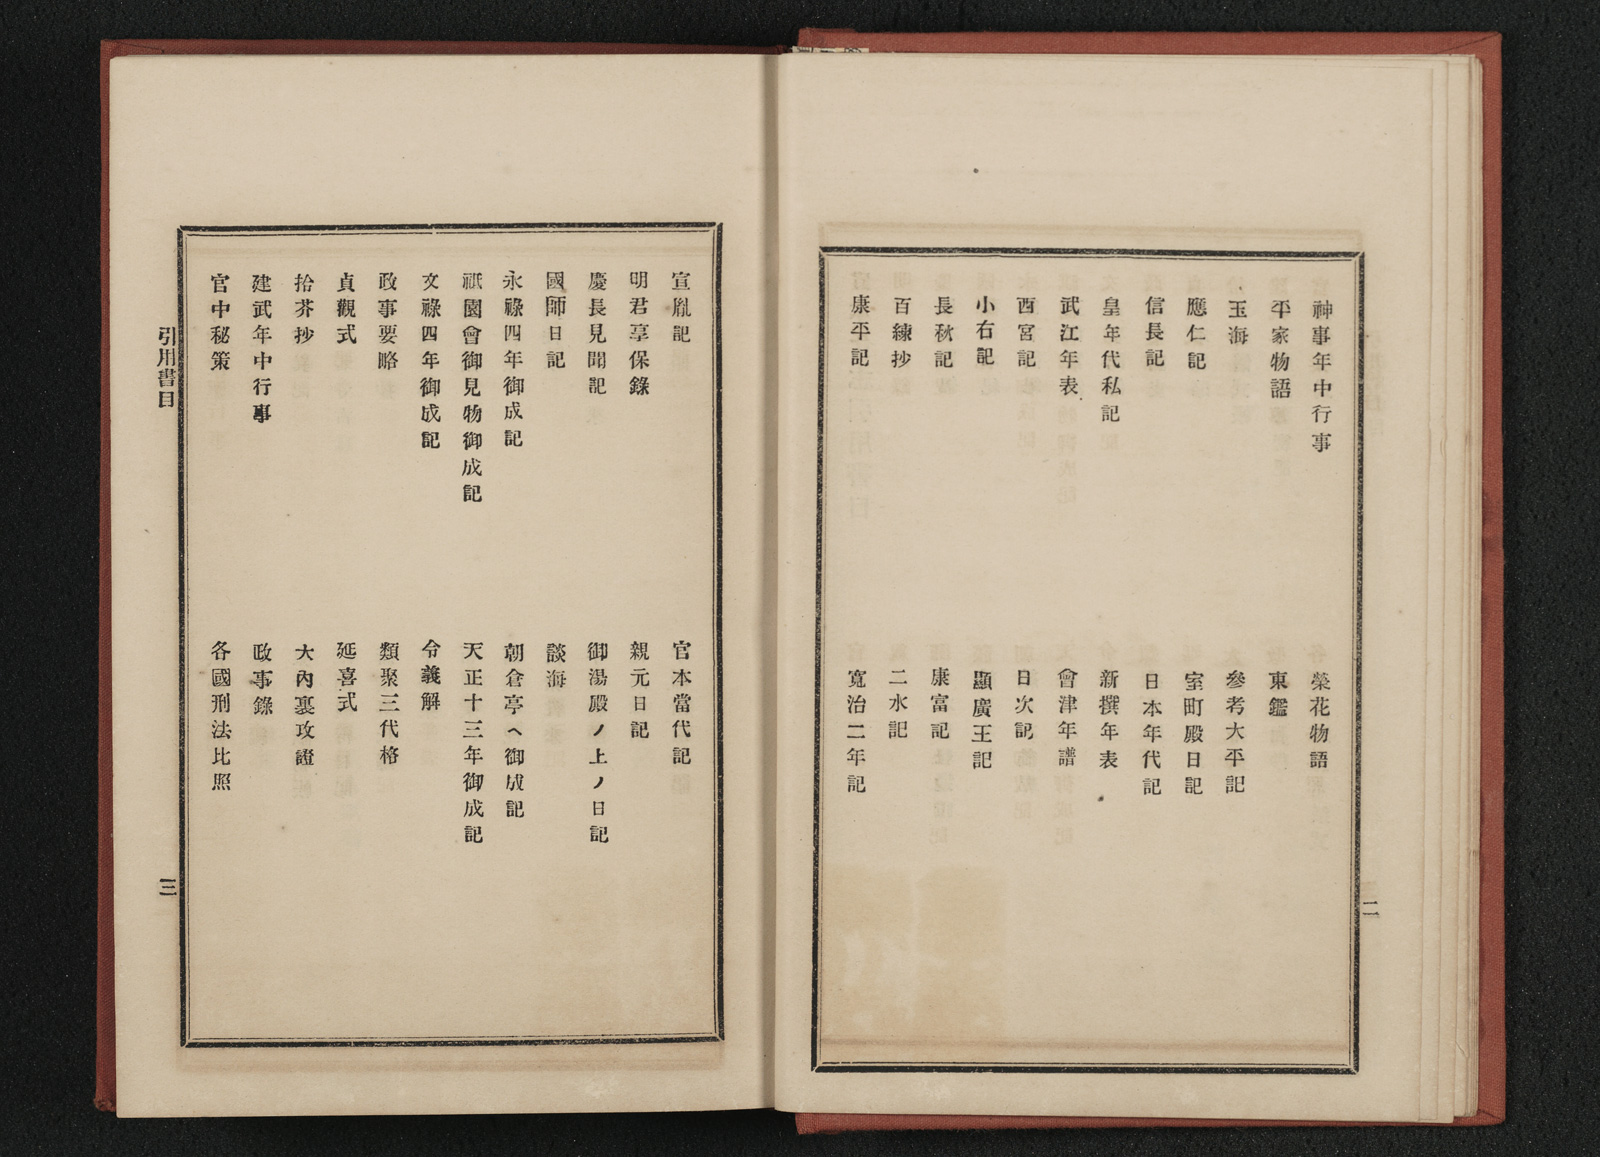 神事年中行事
榮花物語
平家物語
東鑑
玉海
參考大平記
應仁記
室町殿日記
信長記
日本年代記
皇年代私記
新撰年表
武江年表
會津年譜
西宮記
日次記
小右記
顯廣王記
長秋記
康富記
百練抄
二水記
康平記
寬治二年記
二
宣胤記
官本當代記
明君享保錄
親元日記
慶長見聞記
御湯殿ノ上ノ日記
國師日記
談海
永祿四年御成記
朝倉亭ヘ御成記
祇園會御見物御成記
天正十三年御成記
文祿四年御成記
令義解
政事要略
類聚三代格
貞觀式
延喜式
拾芥抄
大內裏攷證
建武年中行事
政事錄
官中秘策
各國刑法比照
引用書目
三